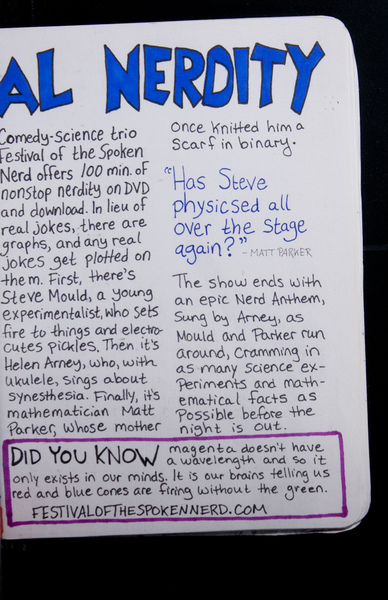 AL NERDITY
Comedy-science trio
Festival of the Spoken
Nerd offers 100 min. of
nonstop nerdity on DVD
and download. In lieu of
real jokes, there are
graphs, and any real
jokes get plotted on
them. First, there's
Steve Mould, a young
experimentalist, who sets
fire to things and electro-
cutes pickles. Then it's
Helen Arney, who, with
ukulele, sings about
synesthesia. Finally, it's
mathematician Matt
Parker, whose mother
once knitted him a
scarf in binary.
"Has Steve
physicsed all
over the stage
again?"
- MATT PARKER
The show ends with
an epic Nerd Anthem,
sung by Arney, as
Mould and Parker run
around, cramming in
as many science ex-
periments and math-
ematical facts as
possible before the
night is out.
DID YOU KNOW magenta doesn't have
a wavelength and so it
only exists in our minds. It is our brains telling us
red and blue cones are firing without the green.
FESTIVALOFTHESPOKENNERD.COM